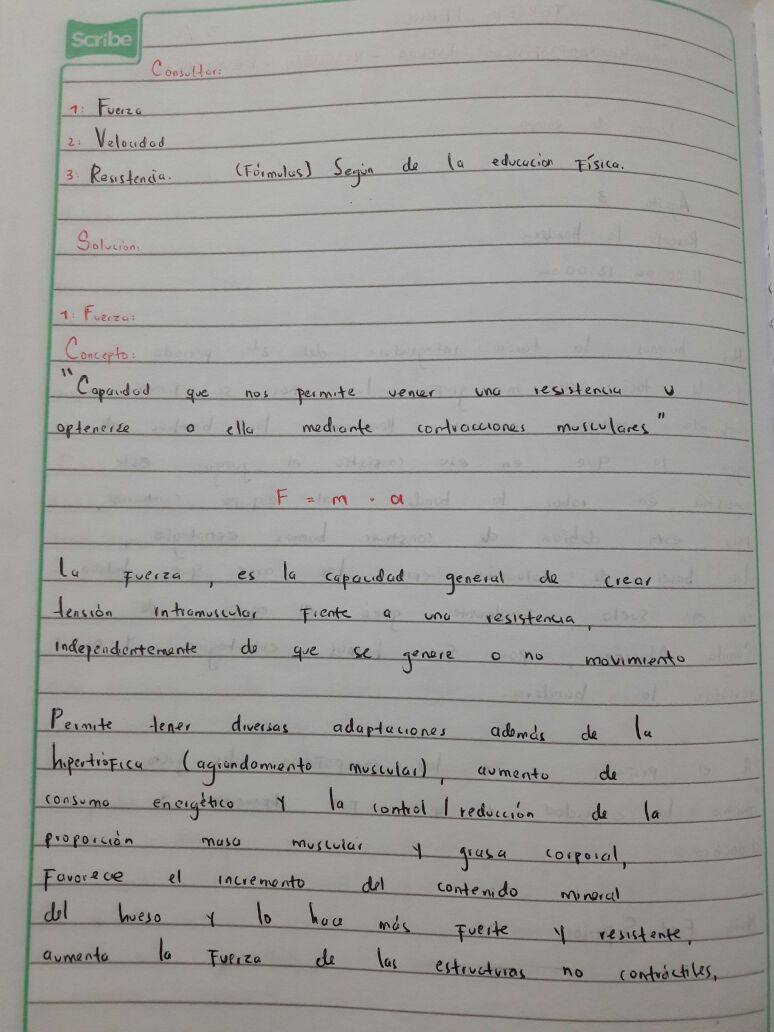 Scribe
Consultar:
1: Fuerza
2: Velocidad
3: Resistencia. (Fórmulas) Según de la educacion Física.
Solucion:
1: Fuerza:
Concepto:
"Capacidad que nos permite vencer una resistencia u
optenerse a ella mediante contracciones musculares"
F = m . a
La fuerza, es la capacidad general de crear
tensión intramuscular frente a una resistencia,
independientemente de que se genere o no movimiento
Permite tener diversas adaptaciones además de la
hipertrófica (agrandamiento muscular), aumento de
consumo energético y la control / reducción de la
proporción masa muscular y grasa corporal,
Favorece el incremento del contenido mineral
del hueso y lo hace más fuerte y resistente,
aumenta la fuerza de las estructuras no contráctiles,